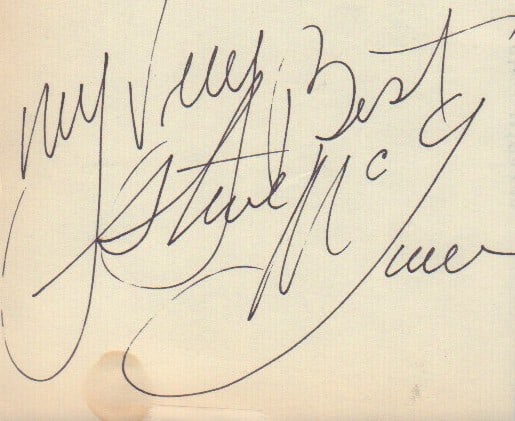 My Very Best
Steve McQueen